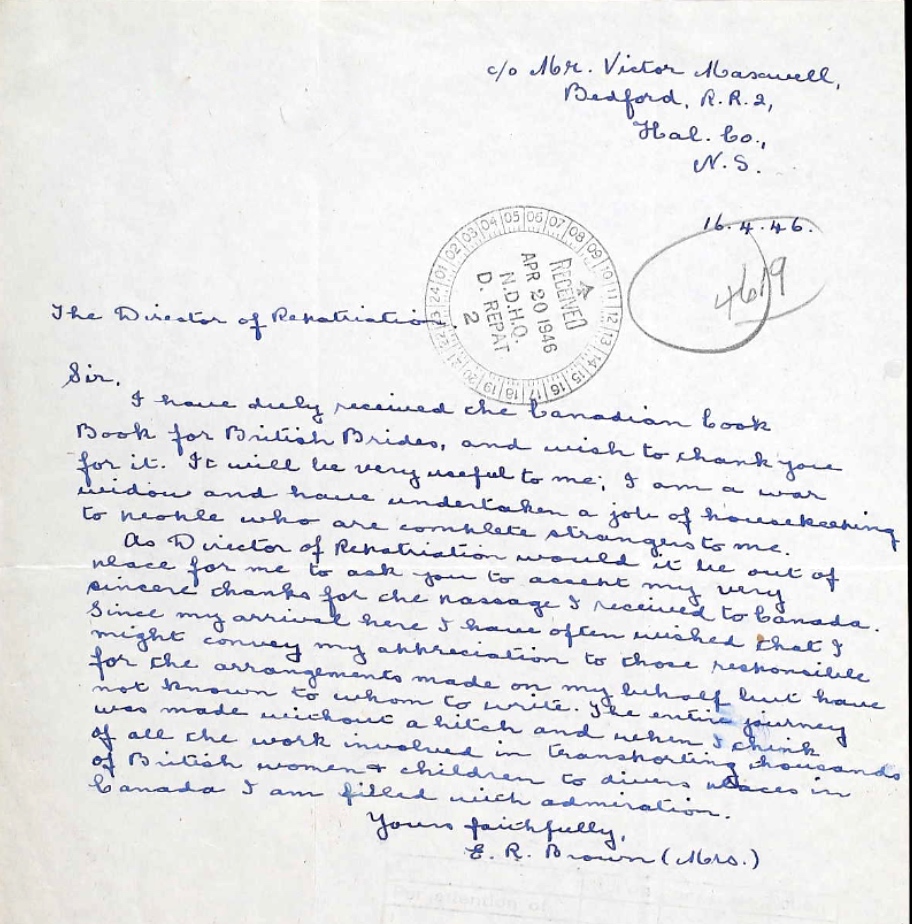 c/o Mr. Victor Maxwell,
Bedford, R.R.2,
Hal. Co.,
N.S.
16.4.46.
4619
24 01 02 03 04 05 06 07 08 09 10 11 12 13 14 15 16 17 18 19 20 21 22 23
RECEIVED
APR 20 1946
N.D.H.Q.
D. REPAT
2
The Director of Repatriation.
Sir,
I have duly received the Canadian Cook
Book for British Brides, and wish to thank you
for it. It will be very useful to me; I am a war
widow and have undertaken a job of housekeeping
to people who are complete strangers to me.
As Director of Repatriation would it be out of
place for me to ask you to accept my very
sincere thanks for the passage I received to Canada.
Since my arrival here I have often wished that I
might convey my appreciation to those responsible
for the arrangements made on my behalf but have
not known to whom to write. The entire journey
was made without a hitch and when I think
of all the work involved in transporting thousands
of British women & children to divers places in
Canada I am filled with admiration.
Yours faithfully,
E. R. Brown (Mrs.)